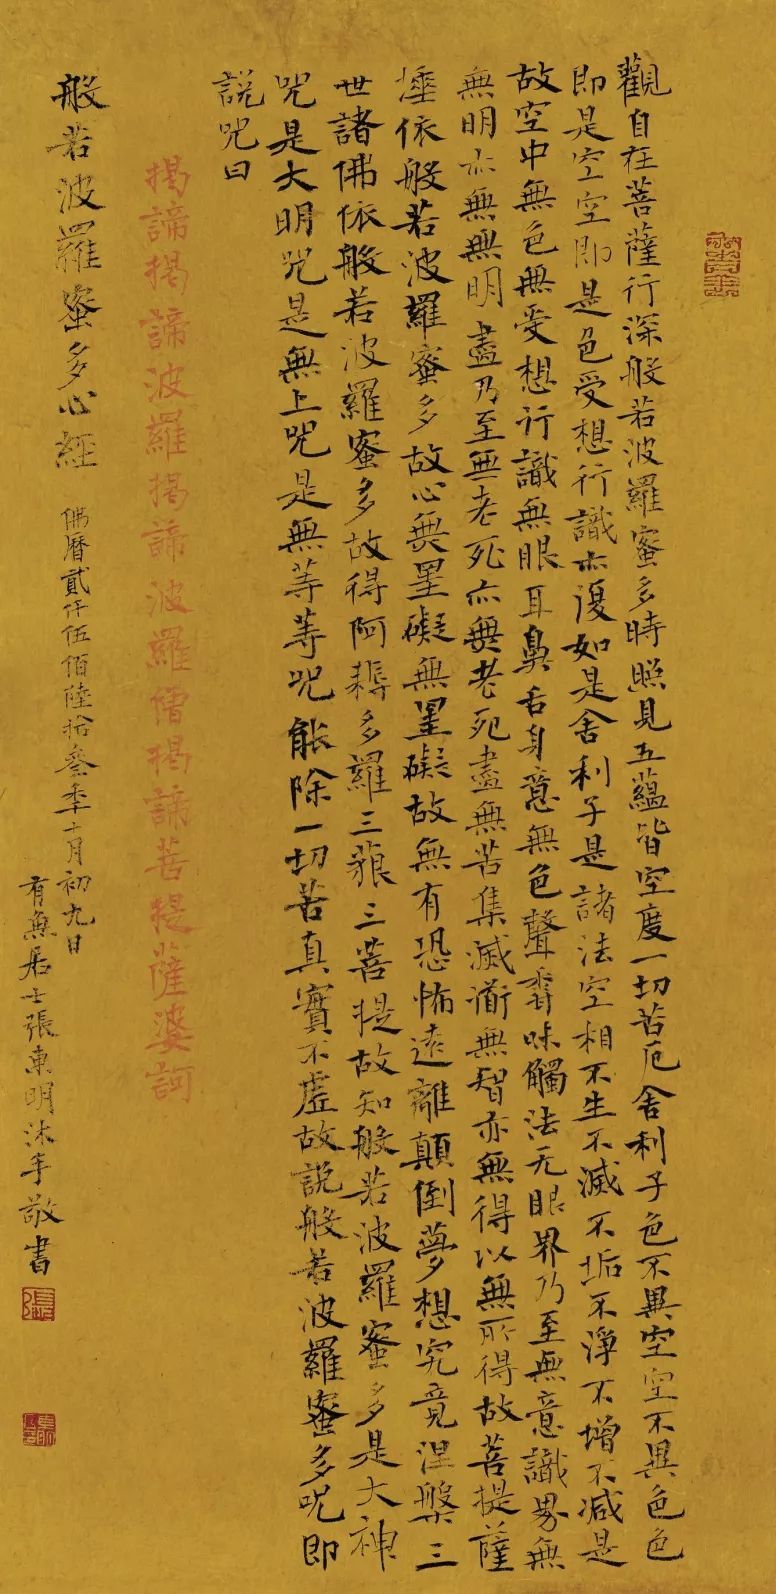 觀自在菩薩行深般若波羅蜜多時照見五蘊皆空度一切苦厄舍利子色不異空空不異色色
即是空空即是色受想行識亦復如是舍利子是諸法空相不生不滅不垢不淨不增不減是
故空中無色無受想行識無眼耳鼻舌身意無色聲香味觸法无眼界乃至無意識界無
無明亦無無明盡乃至無老死亦無老死盡無苦集滅道無智亦無得以無所得故菩提薩
埵依般若波羅蜜多故心無罣礙無罣礙故無有恐怖遠離顛倒夢想究竟涅槃三
世諸佛依般若波羅蜜多故得阿耨多羅三藐三菩提故知般若波羅蜜多是大神
咒是大明咒是無上咒是無等等咒能除一切苦真實不虛故說般若波羅蜜多咒即
說咒曰
揭諦揭諦波羅揭諦波羅僧揭諦菩提薩婆訶
般若波羅蜜多心經
佛曆貳仟伍佰陸拾叁年十月初九日
有無居士張東明沐手敬書
張